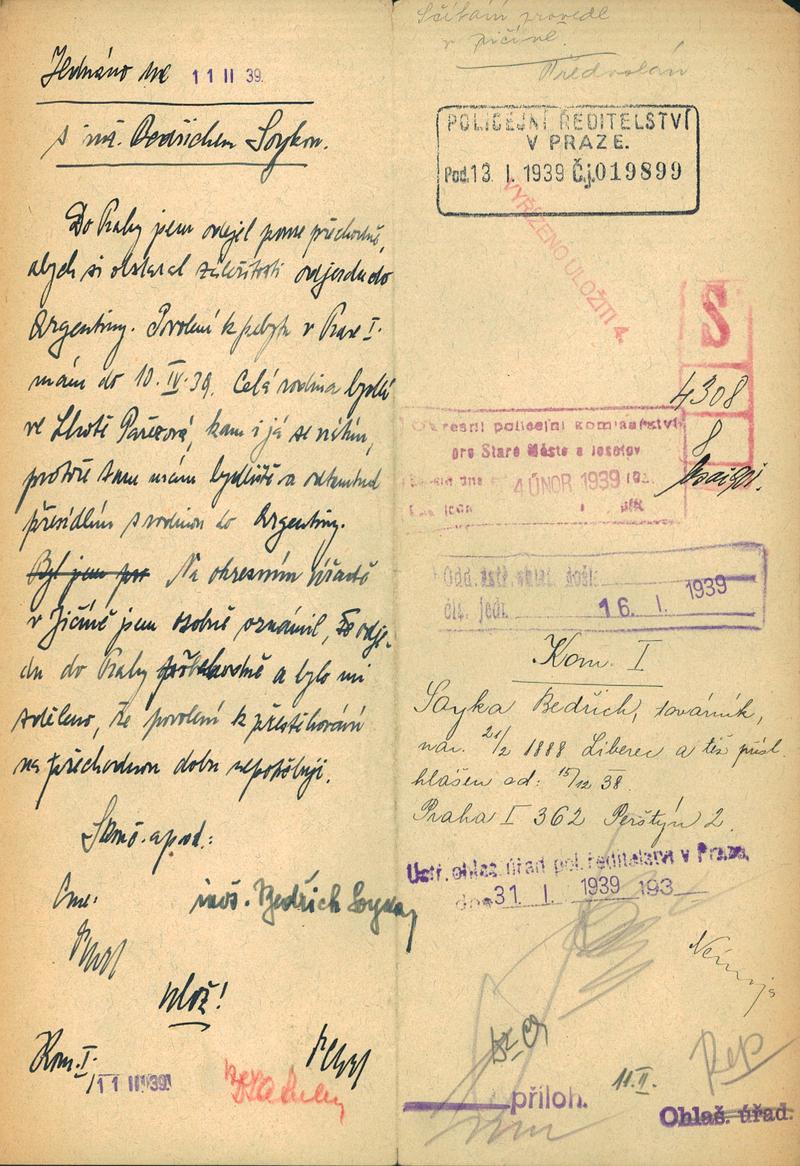 Jednáno dne 11 II 39.
s inž. Bedřichem Soykou.
Do Prahy jsem odejel pouze přechodně,
abych si obstaral záležitosti odjezdu do
Argentiny. Povolení k pobytu v Praze I.
mám do 10.IV.39. Celá rodina bydlí
ve Lhotě Pařezová, kam i já se vrátím,
protože tam mám bydliště a odtamtud
přesídlím s rodinou do Argentiny.
Byl jsem Na okresním úřadě
v Jičíně jsem osobně oznámil, že odje-
du do Prahy přechodně a bylo mi
sděleno, že povolení k přestěhování
na přechodnou dobu nepotřebuji.
Skonč. a pod.:
inž. Bedřich Soyka
ulož!
Kom. I.
11 II 39
Sčítání provedl
v Jičíně.
Předvolán
POLICEJNÍ ŘEDITELSTVÍ
V PRAZE.
Pod. 13 I. 1939 Č.j. 019899
VYŘÍZENO ULOŽITI 4.
S
4308
8
Okresní policejní komisařství
pro Staré Město a Josefov
4 ÚNOR 1939
16. I. 1939
čís. jedn.
Kom. I
Soyka Bedřich, továrník,
nar. 21/2 1888 Liberec a též přísl.
hlášen od: 15/12 38.
Praha I 362 Perštýn 2.
Ústř. ohlaš. úřad pol. ředitelství v Praze,
dne 31. I. 1939 193
11.II.
příloh.
Ohlaš. úřad.